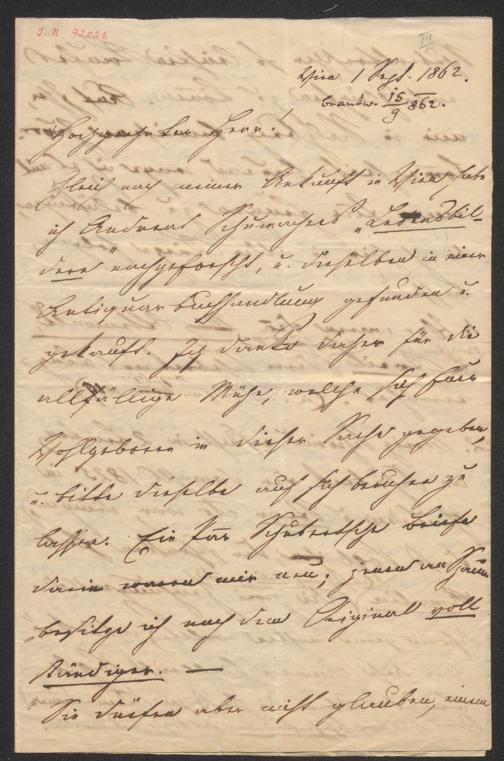 I. N. 72023
III
Wien 1 Sept. 1862.
beantw. 15/9 862.
Hochverehrter Herr!
Gleich nach meiner Ankunft in Wien habe
ich Andreas Schumachers „Lebensbil-
der“ nachgeforscht, u. dieselben in einer
Antiquar buchhandlung gefunden u.
gekauft. Ich danke daher für die
allfällige Mühe, welche sich Euer
Wohlgeboren in dieser Sache gegeben,
u. bitte dieselbe auf sich beruhen zu
lassen. Ein Par Schubertsche Briefe
darin waren mir neu; jenen an
besitze ich nach dem Original voll
ständiger. —
Sie dürfen aber nicht glauben, einem